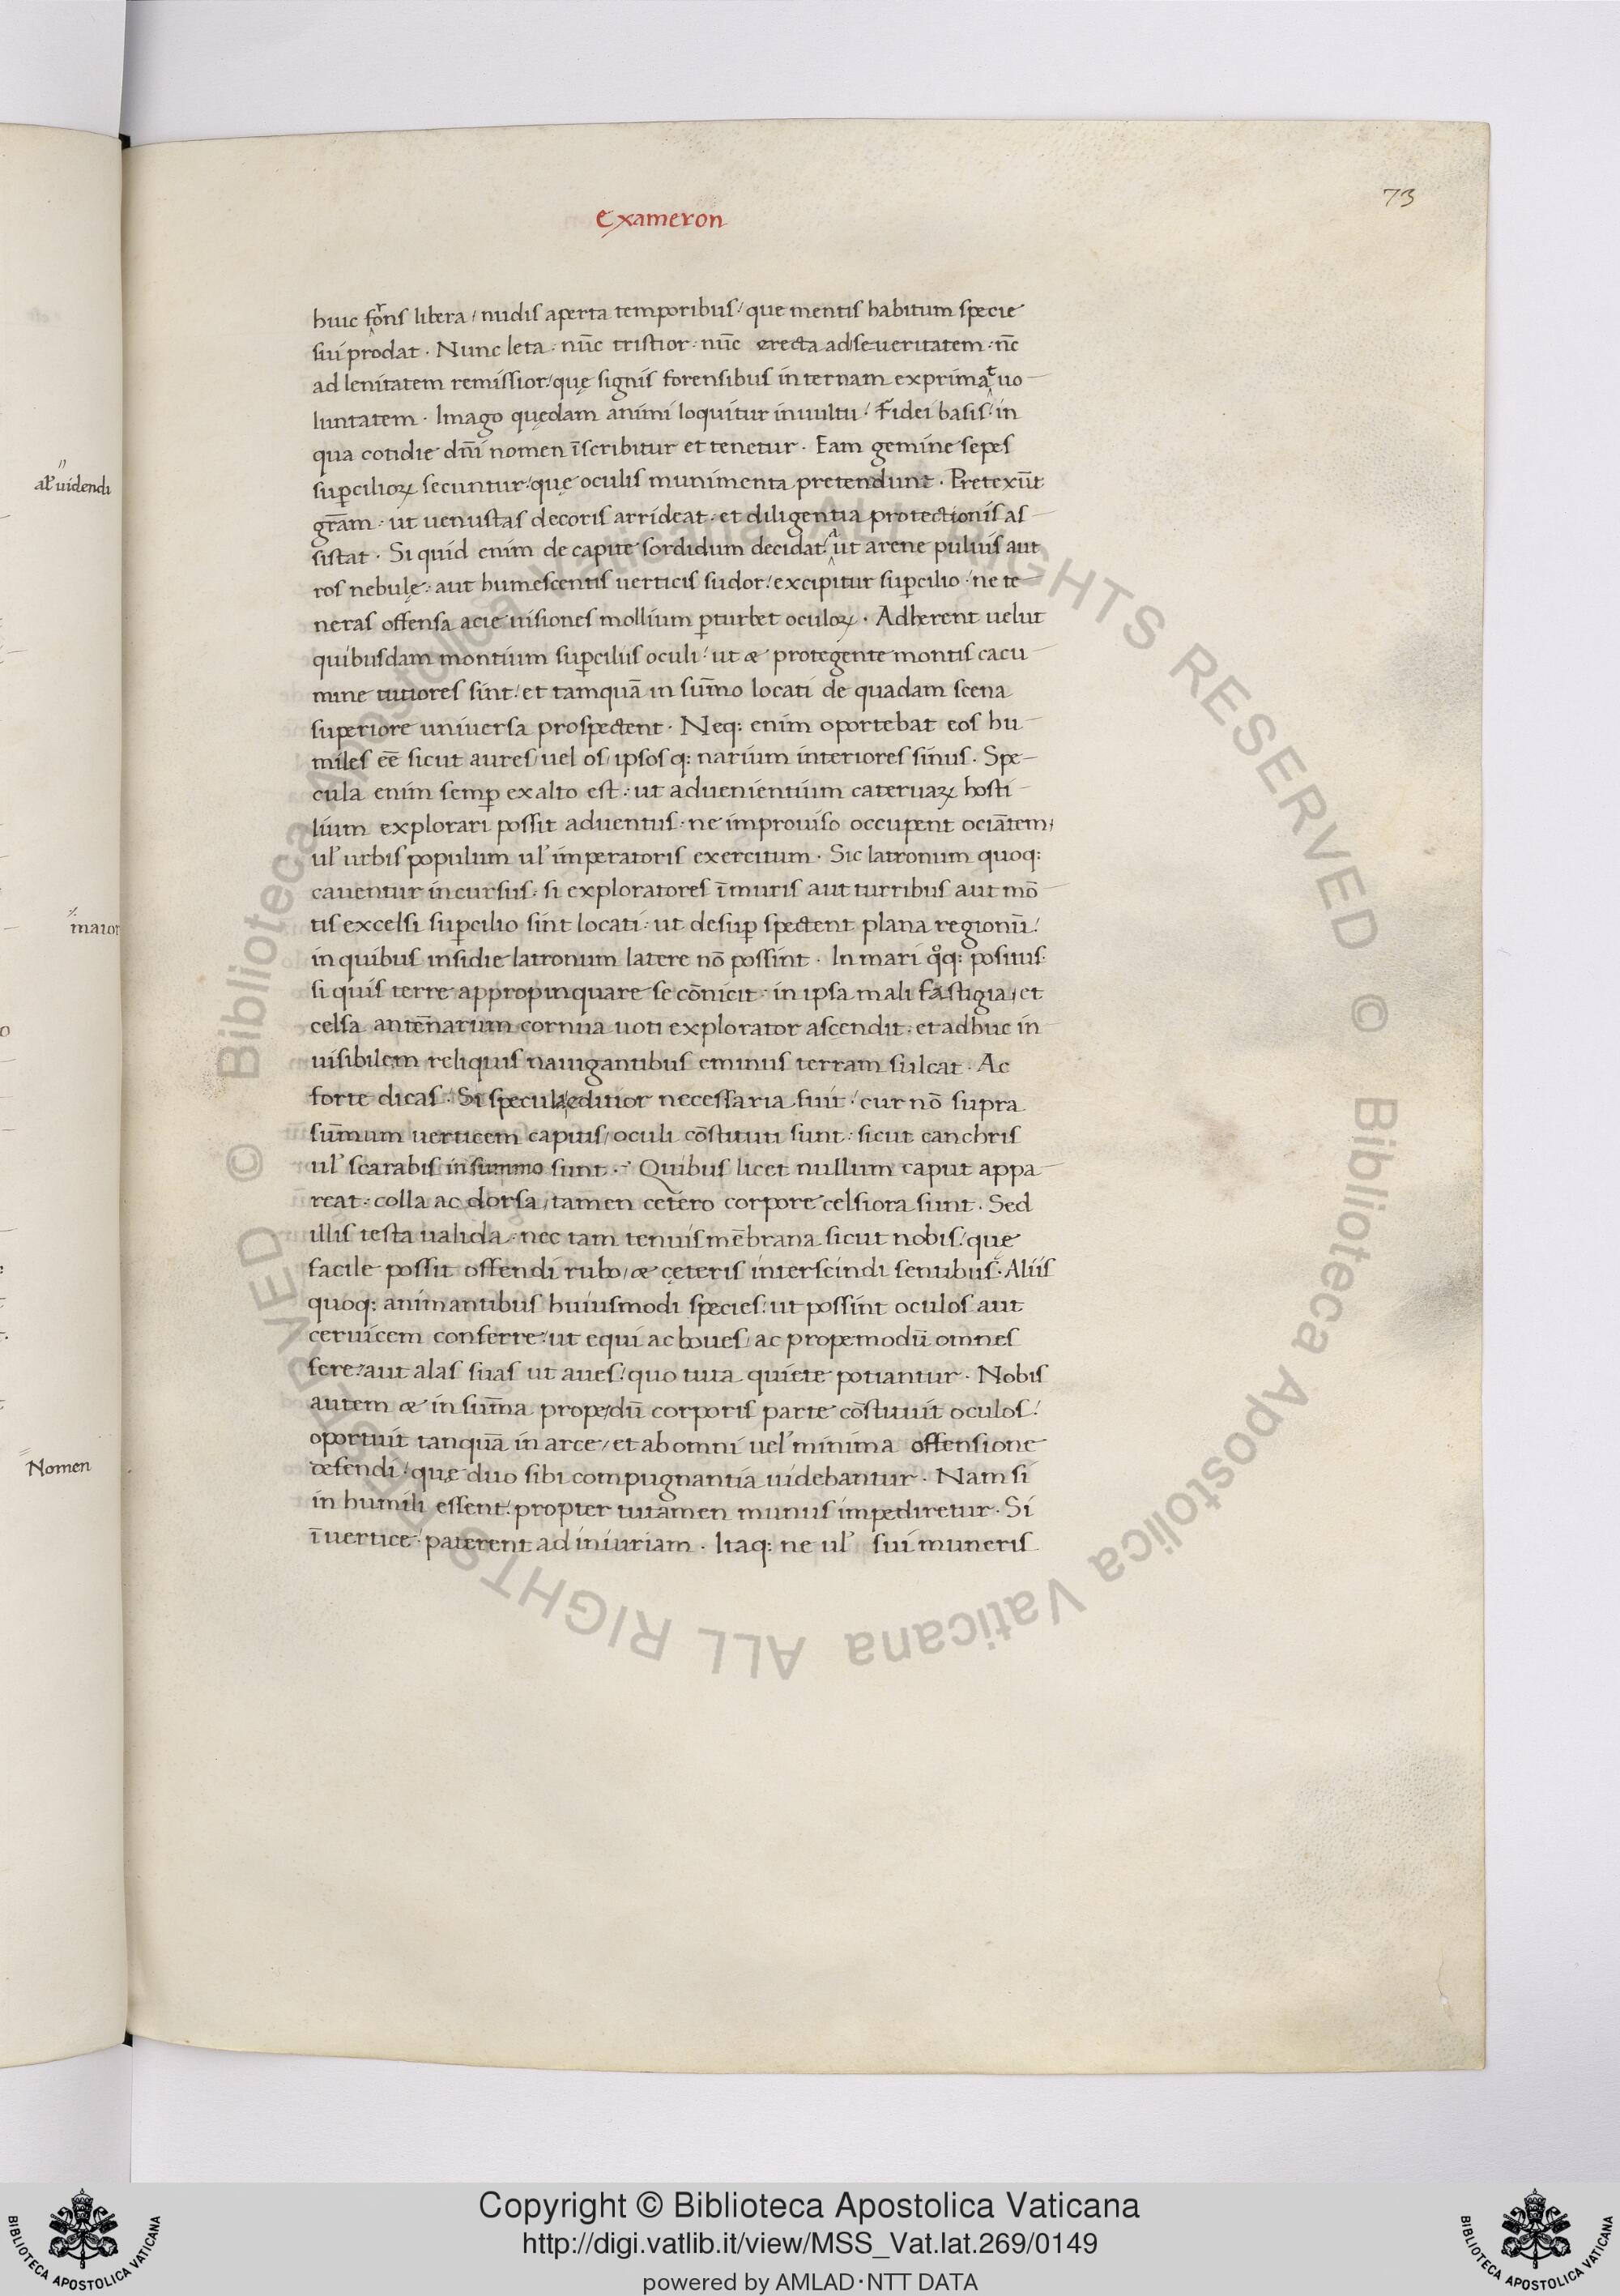 Exameron
73
huic fo͛ns libera / nudis aperta temporibus / que mentis habitum specie
sui prodat · Nunc leta · nūc tristior · nūc erecta ad seueritatem · nc̄
ad lenitatem remissior / quę signis forensibus internam exprimat uo
luntatem · Imago quędam animi loquitur in uultu / Fidei basis / in
qua cotidie dn̄i nomen īscribitur et tenetur · Eam gemine sepes
suꝑcilioꝝ secuntur / quę oculis munimenta pretendunt · Pretexūt
gr̄am · ut uenustas decoris arrideat · et diligentia protectionis as
sistat · Si quid enim de capite sordidum decidat / aut arene puluis aut
ros nebulę · aut humescentis uerticis sudor / excipitur suꝑcilio · ne te
neras offensa acie uisiones mollium ꝑturbet oculoꝝ · Adherent uelut
quibusdam montium suꝑciliis oculi / ut æ protegente montis cacu
mine tutiores sint / et tamquā in sum̄o locati de quadam scena
superiore uniuersa prospectent · Neq: enim oportebat eos hu
miles ēē sicut aures / uel os / ipsosq: narium interiores sinus · Spe
cula enim semꝑ ex alto est · ut aduenientium cateruaꝝ hosti
lium explorari possit aduentus · ne improuiso occupent ociātem /
ul' urbis populum ul' imperatoris exercitum · Sic latronum quoq:
cauentur incursus · si exploratores ī muris aut turribus aut mō
tis excelsi suꝑcilio sint locati · ut desuꝑ spectent plana regionū /
in quibus insidie latronum latere nō possint · In mari qͦq: positus
si quis terre appropinquare se cōnicit · in ipsa mali fastigia / et
celsa anten̄arum cornua uoti explorator ascendit · et adhuc in
uisibilem reliquis nauigantibus eminus terram sulcat · Ac
forte dicas · Si specula editior necessaria fuit / cur nō supra
sum̄um uerticem capitis / oculi cōstituti sunt · sicut canchris
ul' scarabis in summo sunt · Quibus licet nullum caput appa
reat · colla ac dorsa / tamen cetero corpore celsiora sunt · Sed
illis testa ualida · nec tam tenuis mēbrana sicut nobis / que
facile possit offendi rubo / æ cęteris interscindi sentibus · Aliis
quoq: animantibus huiusmodi species / ut possint oculos aut
ceruicem conferre / ut equi ac boues / ac propemodū omnes
fere / aut alas suas ut aues / quo tuta quiete potiantur · Nobis
autem æ in sum̄a prope / dū corporis parte cōstituit oculos /
oportuit tanquā in arce / et ab omni uel minima offensione
defendi / quę duo sibi compugnantia uidebantur · Nam si
in humili essent / propter tutamen munus impediretur · Si
ī uertice / paterent ad iniuriam · Itaq: ne ul' sui muneris
al' uidendi
maior
Nomen
© Biblioteca Apostolica Vaticana ALL RIGHTS RESERVED © Biblioteca Apostolica Vaticana ALL RIGHTS RESERVED
Copyright © Biblioteca Apostolica Vaticana
http://digi.vatlib.it/view/MSS_Vat.lat.269/0149
powered by AMLAD·NTT DATA
BIBLIOTECA APOSTOLICA VATICANA
BIBLIOTECA APOSTOLICA VATICANA